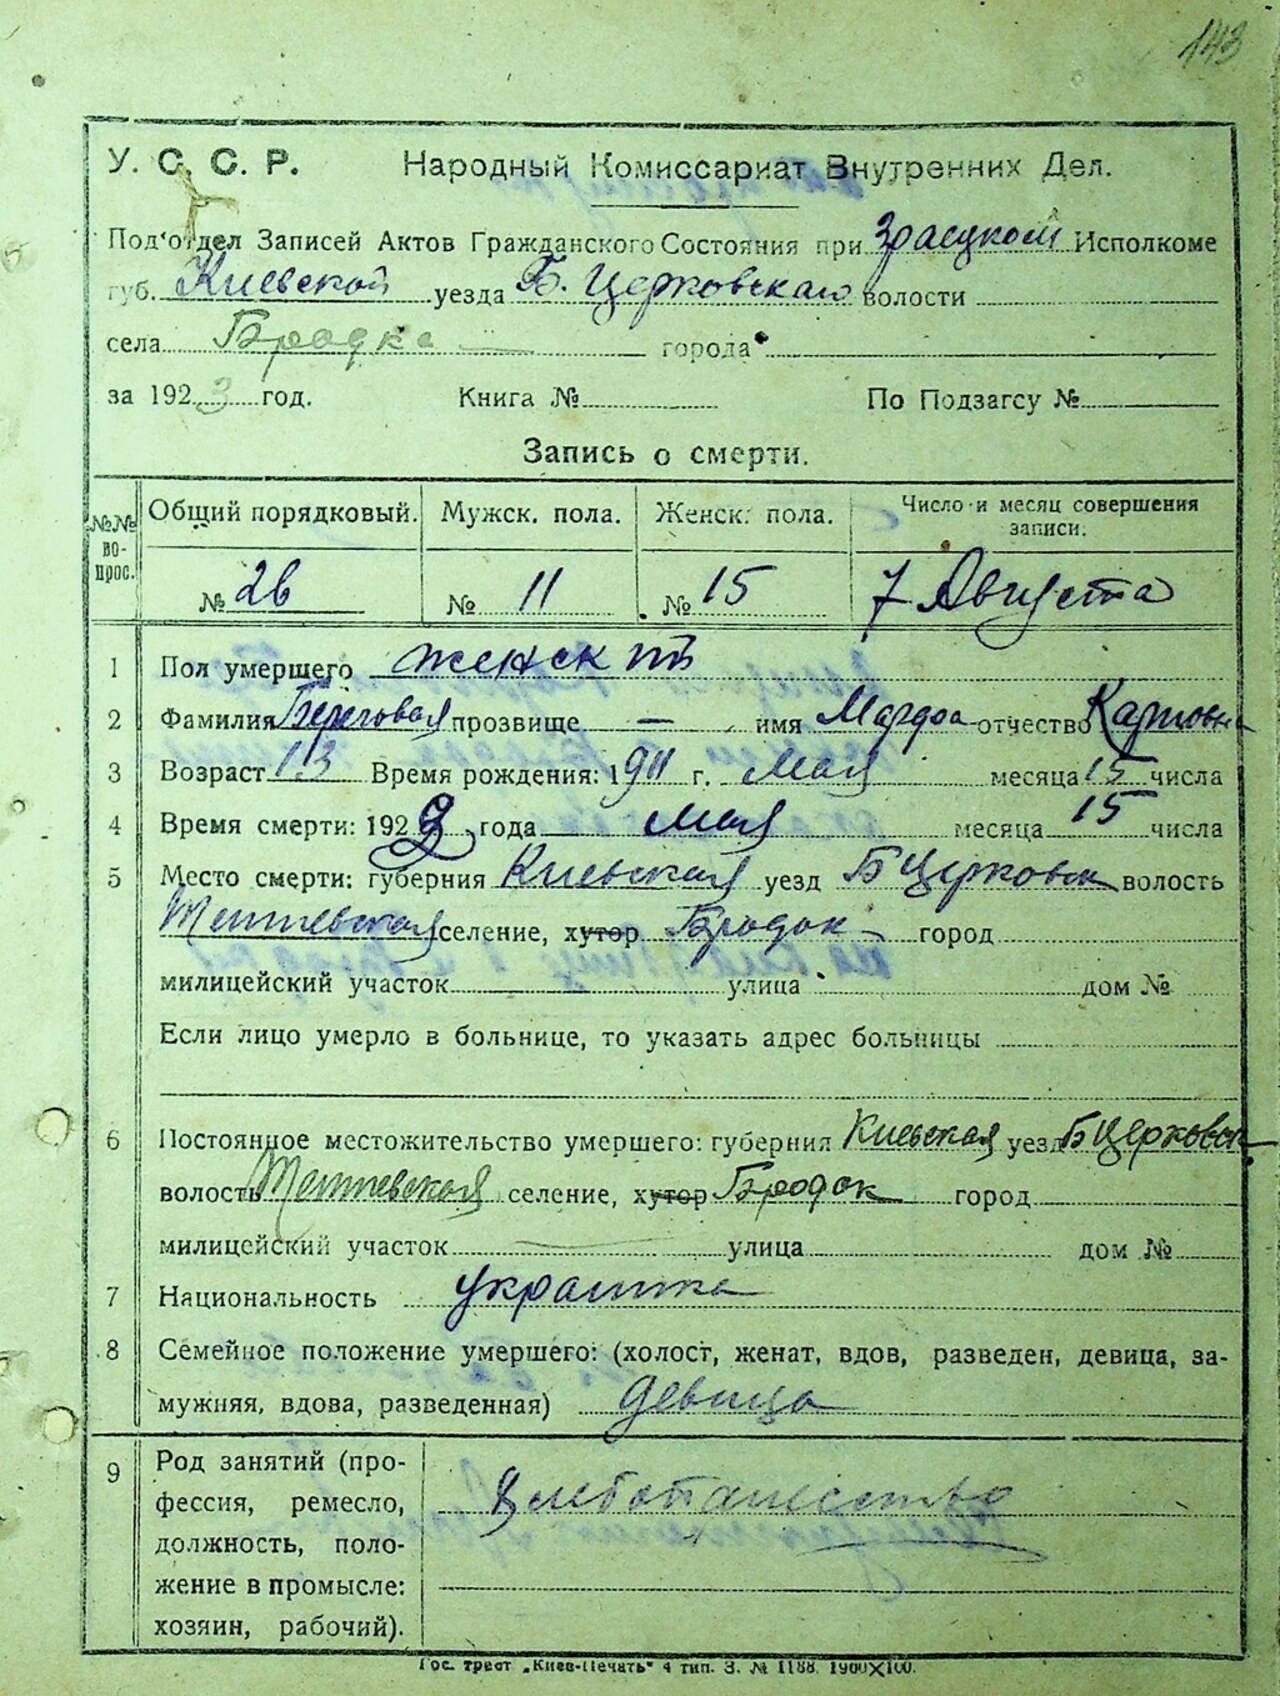 143
У. С. С. Р. Народный Комиссариат Внутренних Дел.
Под'отдел Записей Актов Гражданского Состояния при Исполкоме
губ. Киевской уезда Б. Церковскаго волости
села Бродка города
за 1923 год. Книга № По Подзагсу №
Запись о смерти.
№№ вопрос. Общий порядковый. Мужск. пола. Женск. пола. Число и месяц совершения записи.
№ 26 № 11 № 15 7 Августа
1 Пол умершего женск
2 Фамилия Береговая прозвище — имя Марфа отчество Карповна
3 Возраст 13 Время рождения: 1911 г. Мая месяца 15 числа
4 Время смерти: 192 года Мая месяца 15 числа
5 Место смерти: губерния Киевская уезд Б Церковск волость
селение, хутор Бродок город
милицейский участок улица дом №
Если лицо умерло в больнице, то указать адрес больницы
6 Постоянное местожительство умершего: губерния Киевская уезд Б Церковск
волость селение, хутор Бродок город
милицейский участок улица дом №
7 Национальность украинка
8 Семейное положение умершего: (холост, женат, вдов, разведен, девица, за-
мужняя, вдова, разведенная) девица
9 Род занятий (про-
фессия, ремесло,
должность, поло-
жение в промысле:
хозяин, рабочий).
Хлебопашество
Гос. трест „Киев-Печать" 4 тип. З. № 1188. 1900×100.